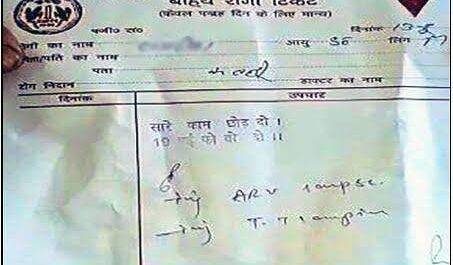 बाह्य रोगी टिकट
(केवल पन्द्रह दिन के लिए मान्य)
पंजी० सं० दिनांक 13
रोगी का नाम आयु 50 लिंग M
पिता/पति का नाम
पता
रोग निदान डाक्टर का नाम
दिनांक उपचार
सारे काम छोड़ दो।
19 मई को वोट दो।।
Inj ARV 1 amp sc.
Inj T.T 1 amp im